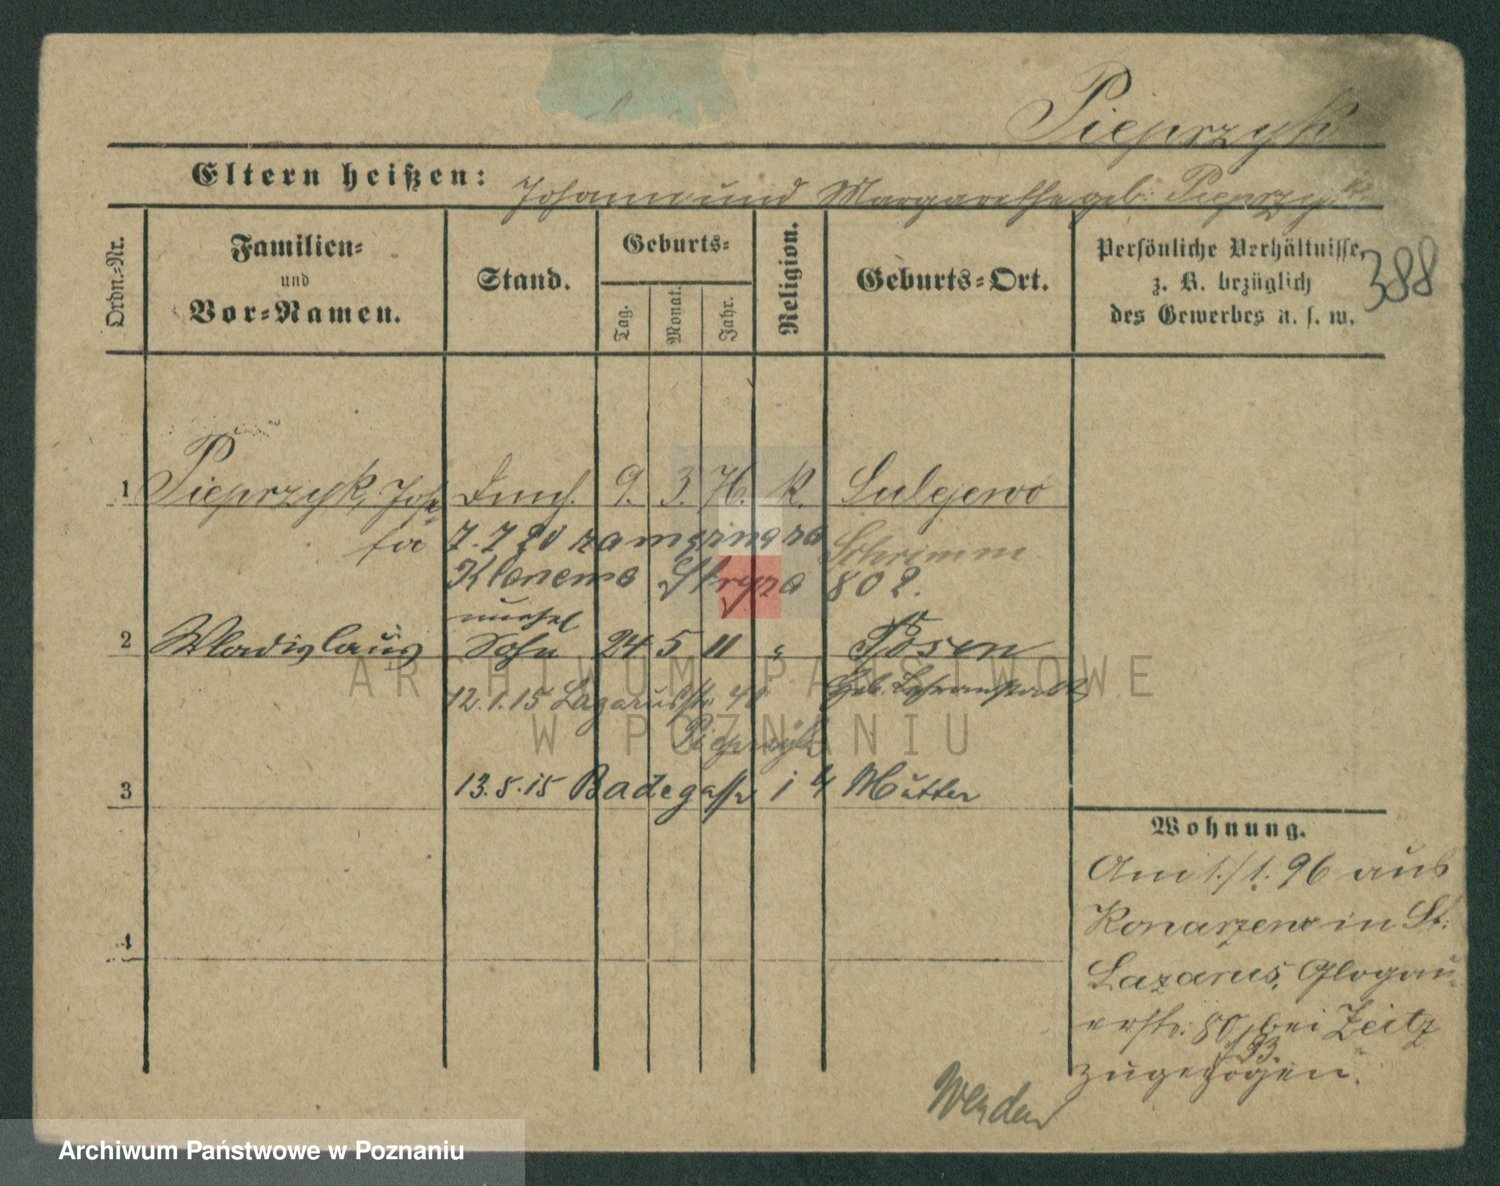 Pieprzyk
Eltern heißen: Johann und Margarethe geb. Pieprzyk
388
Ordn.-Nr.
Familien-
und
Vor-Namen.
Stand.
Geburts-
Tag.
Monat.
Jahr.
Religion.
Geburts-Ort.
Persönliche Verhältnisse,
z. B. bezüglich
des Gewerbes u. s. w.
1 Pieprzyk, Jose- 9. 3. 76. k. Sulejewo
fa 7.7 20 Schrimm
80 2.
unehel
2 Wladislaus Sohn 24 5 11 " Posen
12.1.15 Lazarusstr. Geb.
Pieprzyk
3 13.5.15 Badegasse 4 Mutter
4
Wohnung.
Am 1./1. 96 aus
Konarzewo in St.
Lazarus, Glogau-
erstr. 80 bei Zeitz
93.
zugezogen.
ARCHIWUM PAŃSTWOWE
W POZNANIU
Archiwum Państwowe w Poznaniu